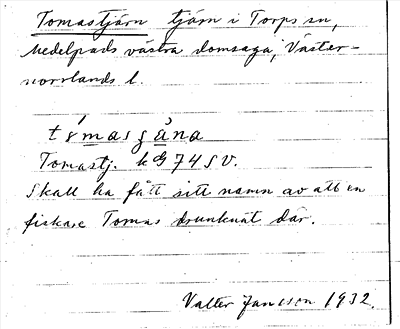 Tomastjärn tjärn i Torps sn,
Medelpads västra domsaga, Väster-
norrlands l.
Tomastj. 74 SV.
Skall ha fått sitt namn av att en
fiskare Tomas drunknat där.
Valter Jansson 1932.